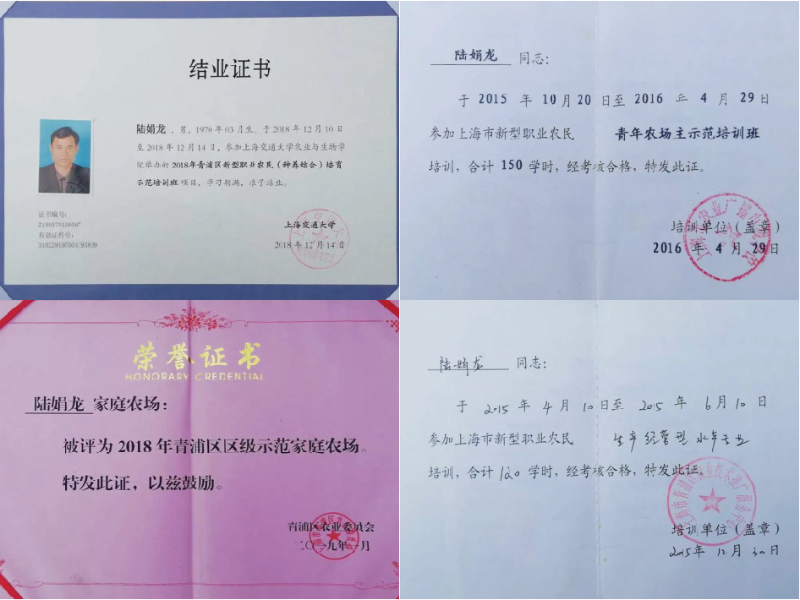 结业证书
陆娟龙 、男，1979年03月生。于2018年12月10日
至2018年12月14日，参加上海交通大学农业与生物学
院举办的2018年青浦区新型职业农民（种养结合）培育
示范培训班 项目，学习期满，准予结业。
证书编号：
有效证件号：
上海交通大学
2018年12月14日
陆娟龙 同志：
于 2015 年 10月 20 日至 2016 年 4 月 29日
参加上海市新型职业农民 青年农场主示范培训班
培训，合计 150 学时，经考核合格，特发此证。
培训单位（盖章）
2016 年 4 月 29日
荣誉证书
HONORARY CREDENTIAL
陆娟龙 家庭农场：
被评为 2018 年青浦区区级示范家庭农场。
特发此证，以兹鼓励。
青浦区农业委员会
二〇一九年一月
陆娟龙 同志：
于 2015 年 4 月 10 日至 2015 年 6月 10 日
参加上海市新型职业农民 生产经营型水产专业
培训，合计 120 学时，经考核合格，特发此证。
培训单位（盖章）
2015年 12 月 30日